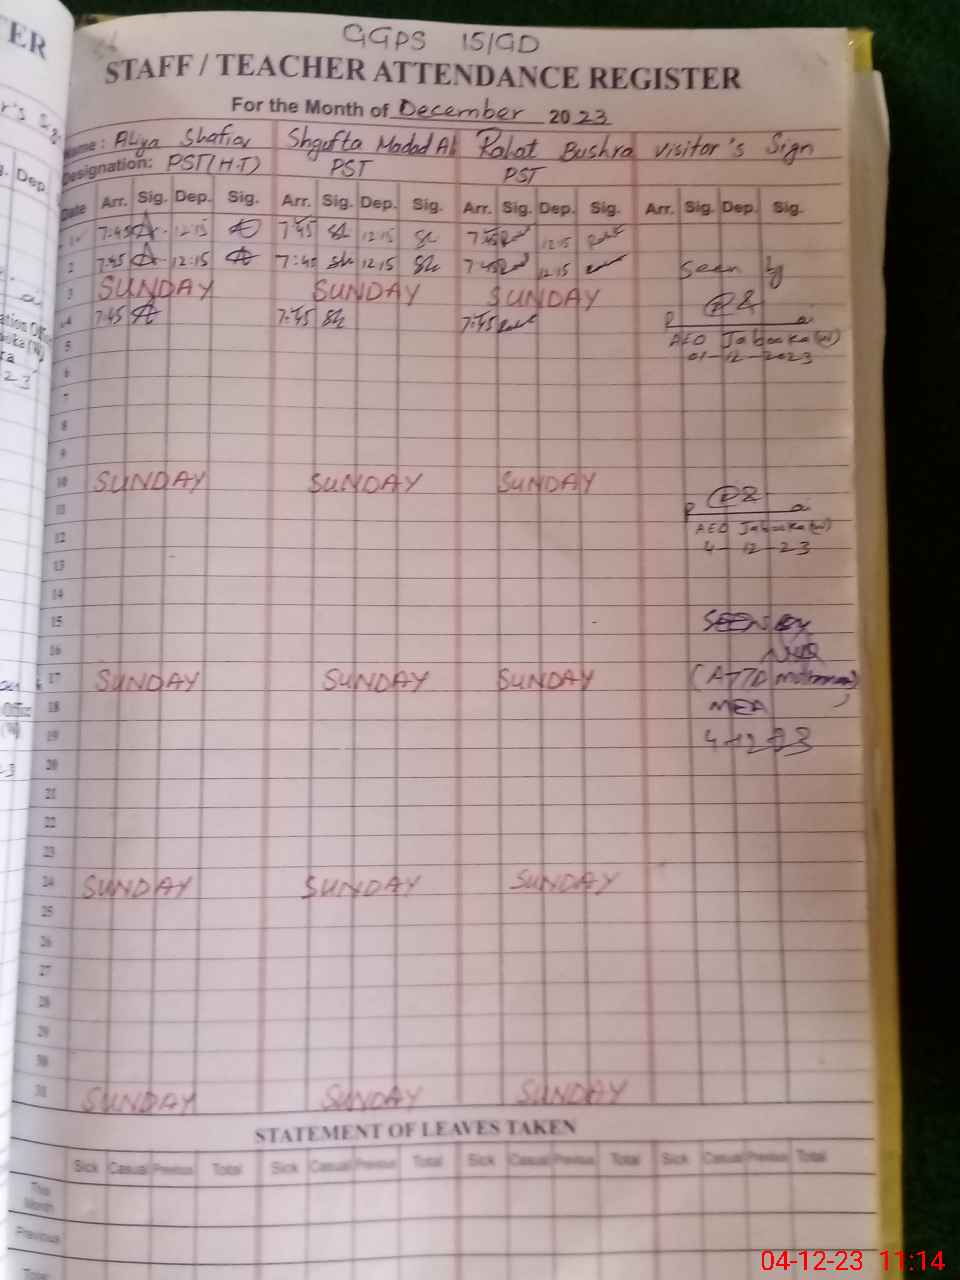 GGPS 15/GD
STAFF / TEACHER ATTENDANCE REGISTER
For the Month of December 2023
Name: Aliya Shafiq Shgufta Madad Ali Rahat Bushra visitor's Sign
Designation: PST(H.T) PST PST
Date Arr. Sig. Dep. Sig. Arr. Sig. Dep. Sig. Arr. Sig. Dep. Sig. Arr. Sig. Dep. Sig.
1 7:45 12:15 7:45 Sh 12:15 Sh 7:45 12:15
2 7:45 12:15 7:45 Sh 12:15 Sh 7:45 12:15 Seen by
3 SUNDAY SUNDAY SUNDAY
4 7:45 7:45 Sh 7:45
5 AEO Jabooka (W)
01-12-2023
6
7
8
9
10 SUNDAY SUNDAY SUNDAY
11
12 AEO Jabooka (W)
4-12-23
13
14
15 SEEN By
16
17 SUNDAY SUNDAY SUNDAY
18 MEA
19 4-12-23
20
21
22
23
24 SUNDAY SUNDAY SUNDAY
25
26
27
28
29
30
31 SUNDAY SUNDAY SUNDAY
STATEMENT OF LEAVES TAKEN
Sick Casual Previous Total Sick Casual Previous Total Sick Casual Previous Total Sick Casual Previous Total
This Month
Previous
Total
04-12-23 11:14